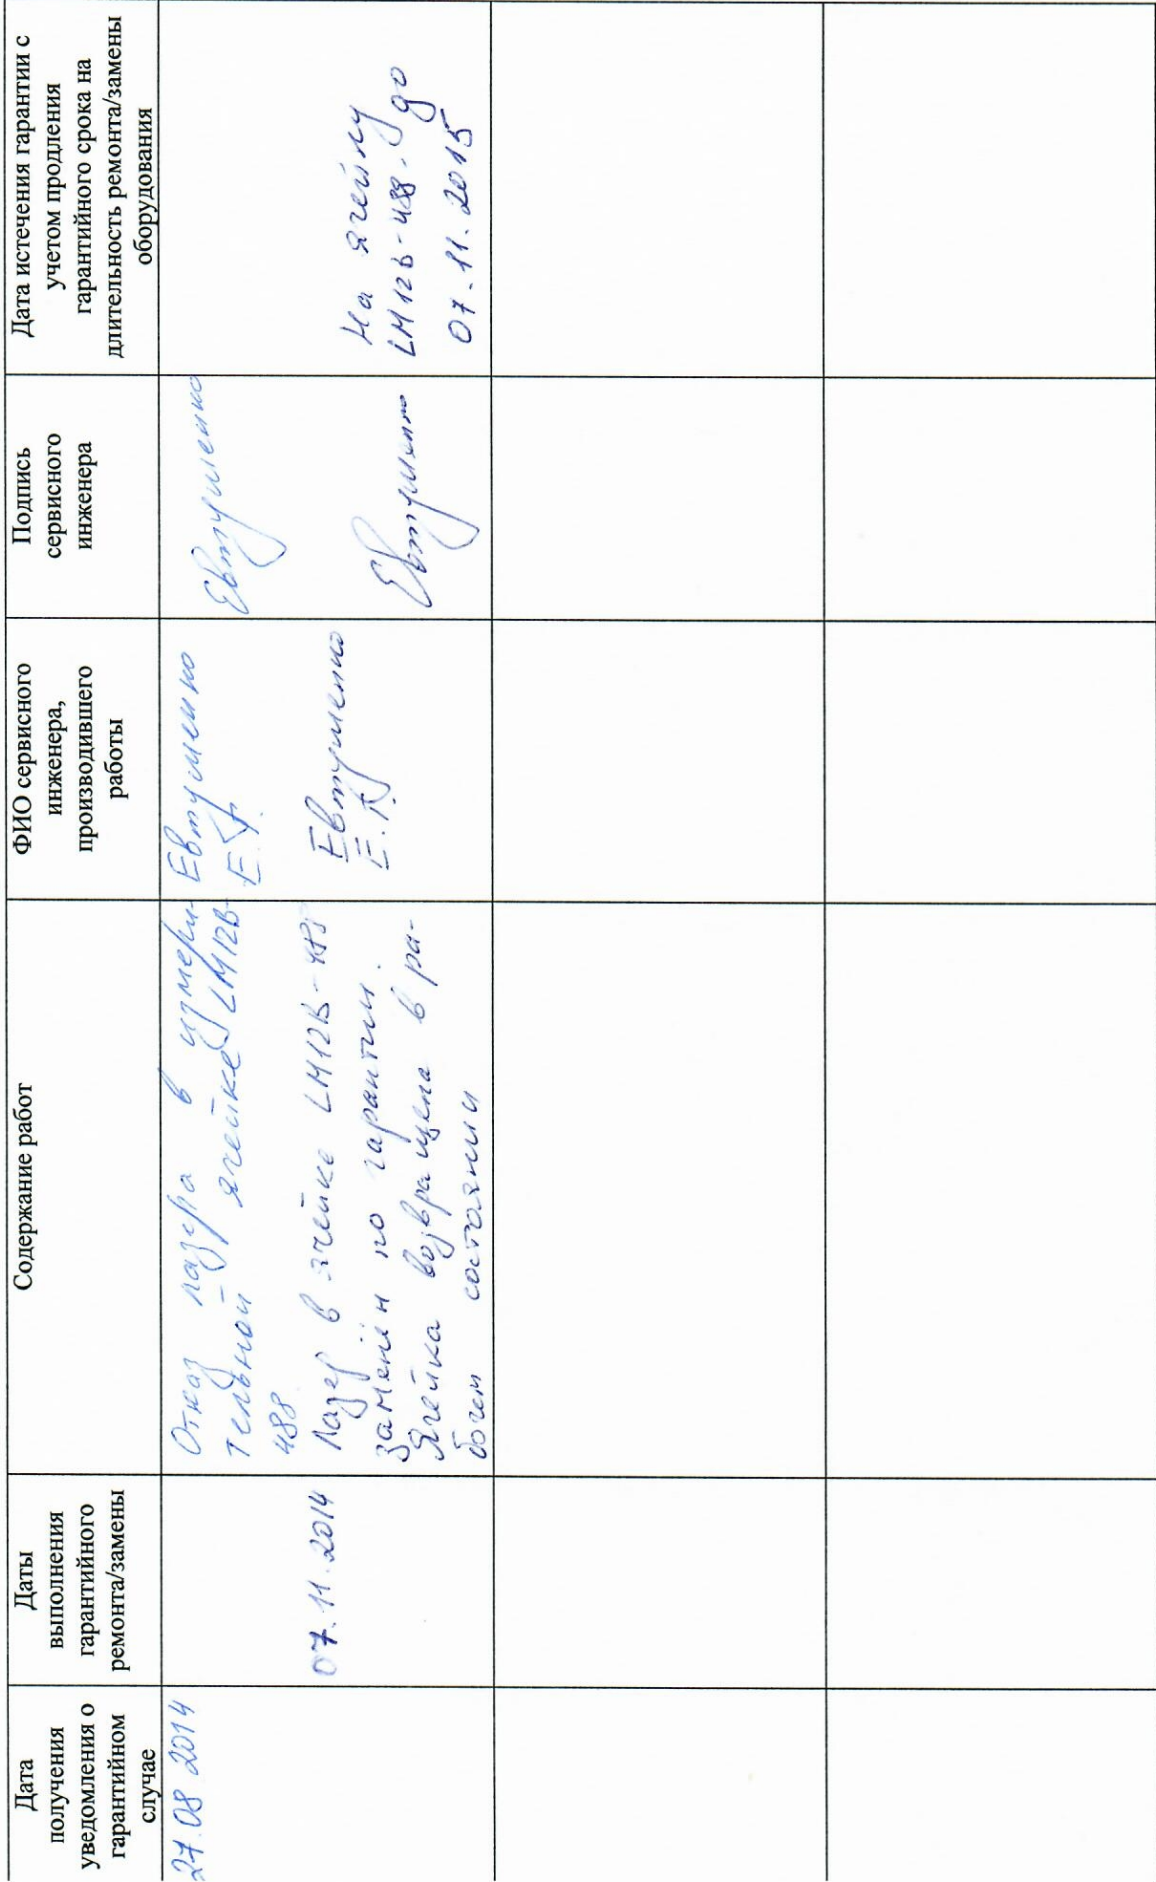 Дата
получения
уведомления о
гарантийном
случае
Даты
выполнения
гарантийного
ремонта/замены
Содержание работ
ФИО сервисного
инженера,
производившего
работы
Подпись
сервисного
инженера
Дата истечения гарантии с
учетом продления
гарантийного срока на
длительность ремонта/замены
оборудования
27.08 2014
Отказ лазера в измери-
тельной ячейке LM12B-
488
Евтушенко
Е.
Евтушенко
07.11.2014
Лазер в ячейке LM12B-488
заменён по гарантии.
Ячейка возвращена в ра-
бочем состоянии
Евтушенко
Е.
Евтушенко
На ячейку
LM12B-488 до
07.11.2015